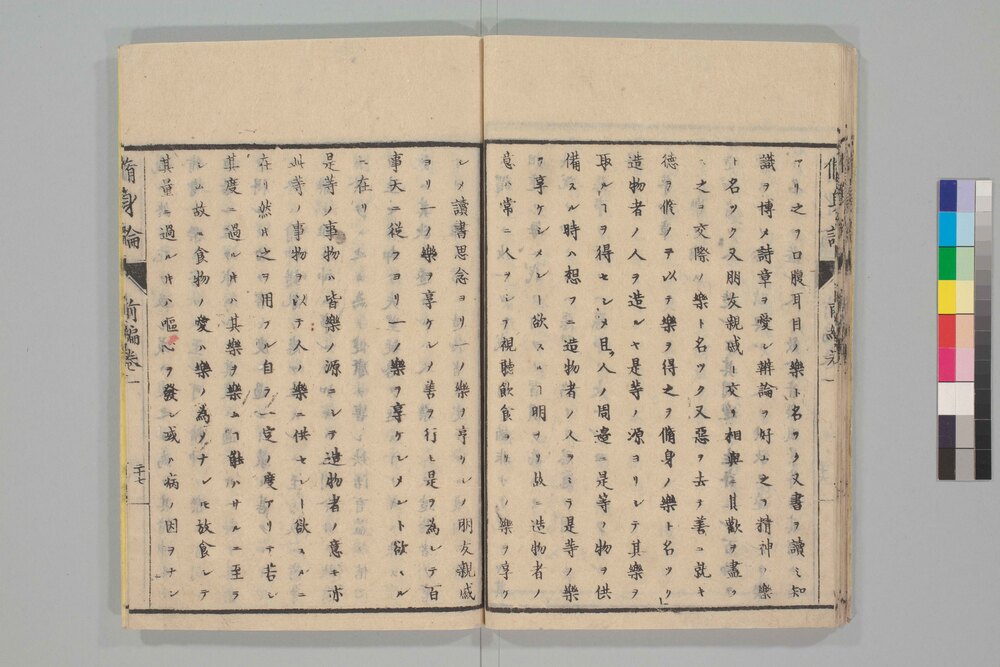 アリ之ヲ口腹耳目ノ樂ト名ヅク又書ヲ讀ミ知
識ヲ博メ詩章ヲ愛シ辨論ヲ好ム之ヲ精神ノ樂
ト名ツク又朋友親戚ト交リ相與ニ其歡ヲ盡ス
之ヲ交際ノ樂ト名ツク又惡ヲ去テ善ニ就キ
德ヲ脩メ以テ樂ヲ得之ヲ脩身ノ樂ト名ツク
造物者ノ人ヲ造ルヤ是等ノ源ヨリシテ其樂ヲ
取ルヿヲ得セシメ且人ノ周邉ニ是等ノ物ヲ供
備スル時ハ想フニ造物者ノ人ヲシテ是等ノ樂
ヲ享ケシメント欲スルヿ明ナリ故ニ造物者ノ
意ハ常ニ人ヲシテ視聽飲食ヨリ一ノ樂ヲ享ケ
シメ讀書思念ヨリ一ノ樂ヲ享ケシメ朋友親戚
ヨリ一ノ樂ヲ享ケシメ善ヲ行ヒ是ヲ為シテ百
事天ニ從フヨリ一ノ樂ヲ享ケシメント欲スル
ニ在リ
是等ノ事物ハ皆樂ノ源ニシテ造物者ノ意モ亦
此等ノ事物ヲ以テ人ノ樂ニ供セント欲スルニ
在リ然𪜈之ヲ用フル自ラ一定ノ度アリナ若シ
其度ニ過ル片ハ其樂ヲ樂ムヿ能ハサルニ至ラ
シム故ニ食物ノ愛ハ樂ノ為メナレ𪜈放食シテ
其量ニ過ル片ハ嘔心ヲ發シ或ハ病ノ因ヲナシ
脩身論 前編卷一 二十七